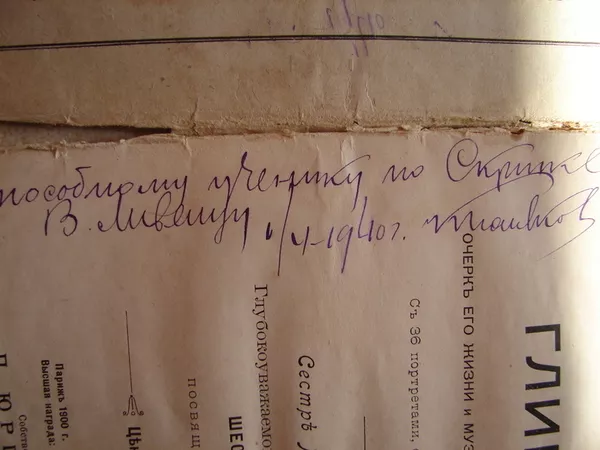 пособному ученику по Скрипке
В. 1940 г.
ГЛИ
ОЧЕРКЪ ЕГО ЖИЗНИ И МУЗ
Съ 36 портретами,
Сестрѣ
Глубокоуважаемо
посвящ
ШЕС
ЦѢ
Парижъ 1900 г.
Высшая награда:
П. ЮР
Собств